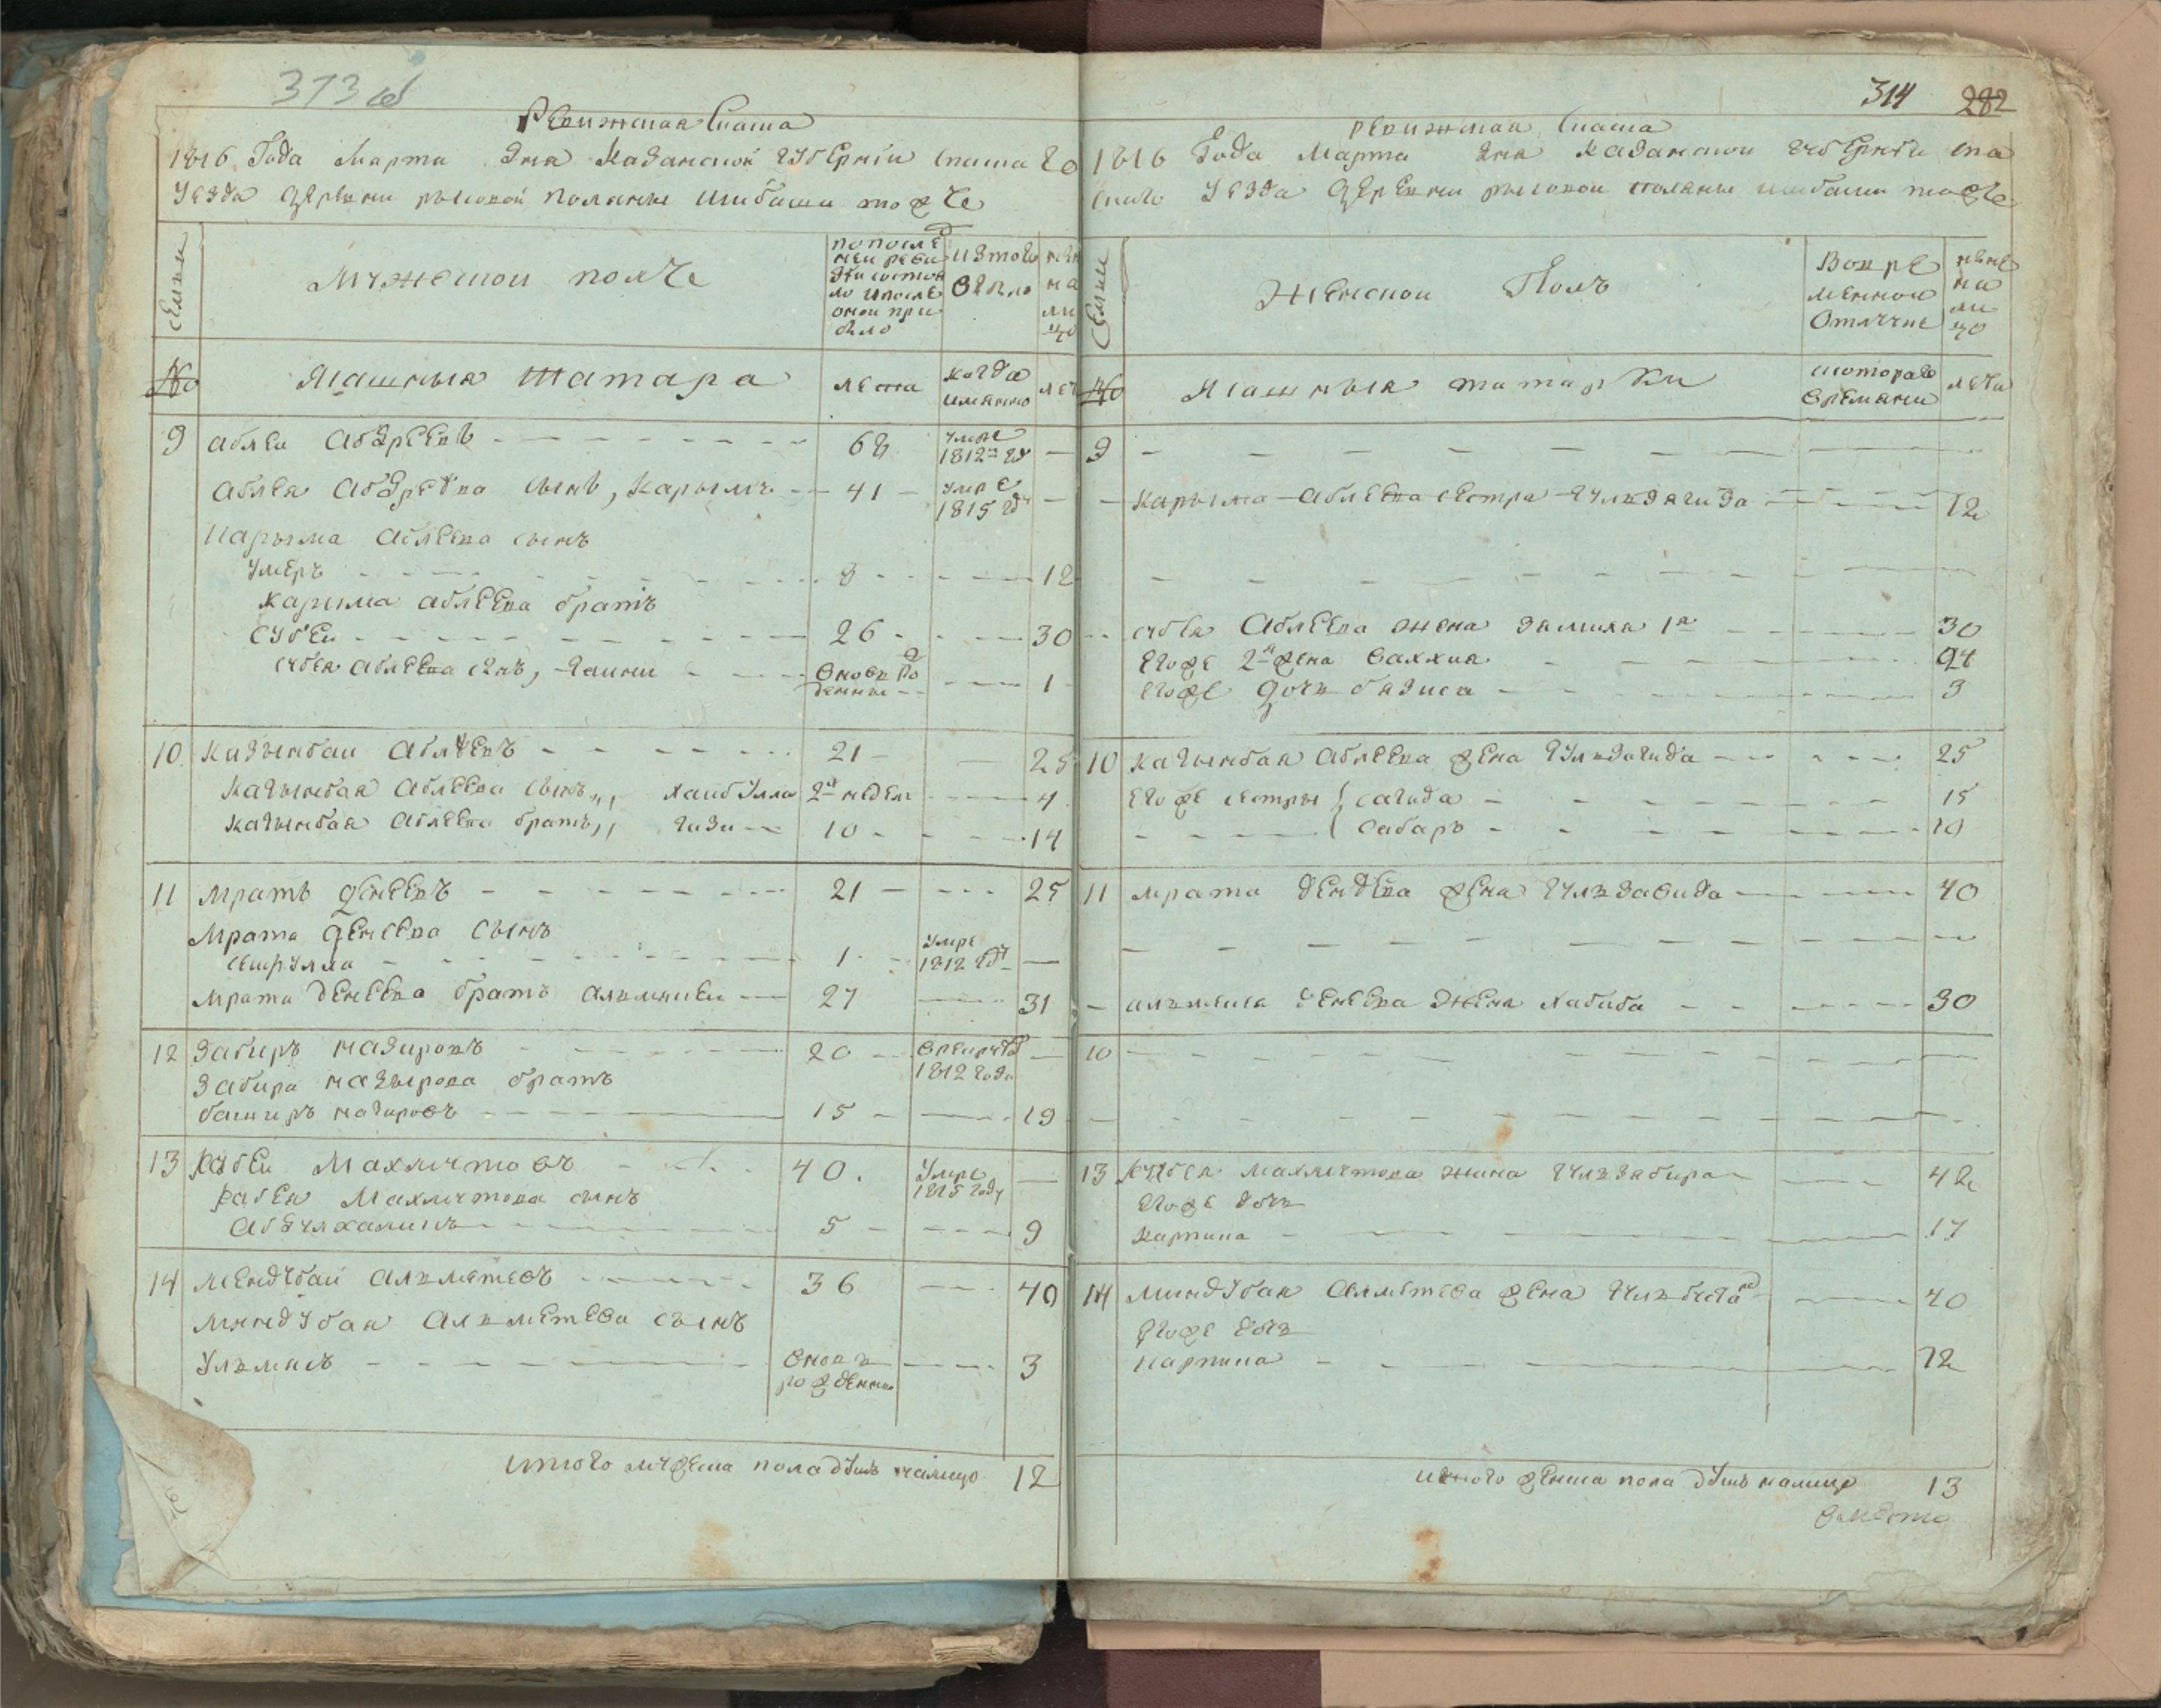 373 об
Ревижская Скаска
1816 Года Марта дня Казанской губернiи Спаскаго
Уезда деревни рысовой поляны Шибаши тожъ
Семьи
Мужеской полъ
по после
ней реви
зiи состоя
ло и после
оной при
было
Изтого
выбыло
ныне
на
ли
цо
№
Ясашныя татара
лета
когда
имянно
лета
9 Абляй Абдреевъ 68 умре 1812го году
Абляя Абдреева сынъ, Карымъ 41 умре 1815 году
Карыма Аблеева сынъ
Умеръ 8 12
Карыма Аблеева братъ
Субей 26 30
Субея Аблеева сынъ, вновь рожденные 1
10 Казымбай Аблеевъ 21 25
Казымбая Аблеева сынъ, Хаибулла 2х недель 4
Казымбая Аблеева братъ, Гизи 10 14
11 Мратъ Денеевъ 21 25
Мрата Денеева сынъ
Сейфулла 1 умре 1812 году
Мрата Денеева братъ Альмикей 27 31
12 Забиръ Назировъ 20 в рекруты 1812 года
Забира Назырова братъ
Баширъ Назировъ 15 19
13 Махмутовъ 40. умре 1815 году
Махмутова сынъ
Абдулхаликъ 5 9
14 Мендубай Альметевъ 36 40
Миндубая Альметева сынъ
Ульмясъ вновь рожденны 3
итого мужеска пола душъ налицо 12
314 282
ревижская Скаска
1816 Года Марта дня Казанской губернiи Спа
скаго Уезда деревни рысовой поляны шибаши тожъ
Семьи
Женской Полъ
Во вре
менной
Отлучке
ныне
на
ли
цо
№
Ясашныя татарки
с котораго
времяни
лета
9
Карыма Аблеева сестра Гульзягида 12
Субея Аблеева жена Замиля 1я 30
Его же 2я жена Валхия 24
Его же дочь Бязиса 3
10 Казымбая Аблеева жена Гульзагида 25
Его же сестры Сагида 15
Сабаръ 10
11 Мрата Денеева жена Гульзавида 40
Альмикея Денеева жена Хабиба 30
10
13 Махмутова жина Гульзабира 42
Его же дочь
Карпина 17
14 Миндубая Алметева жена 40
Его же дочь
Карпина 12
итого женска пола душъ налицо 13